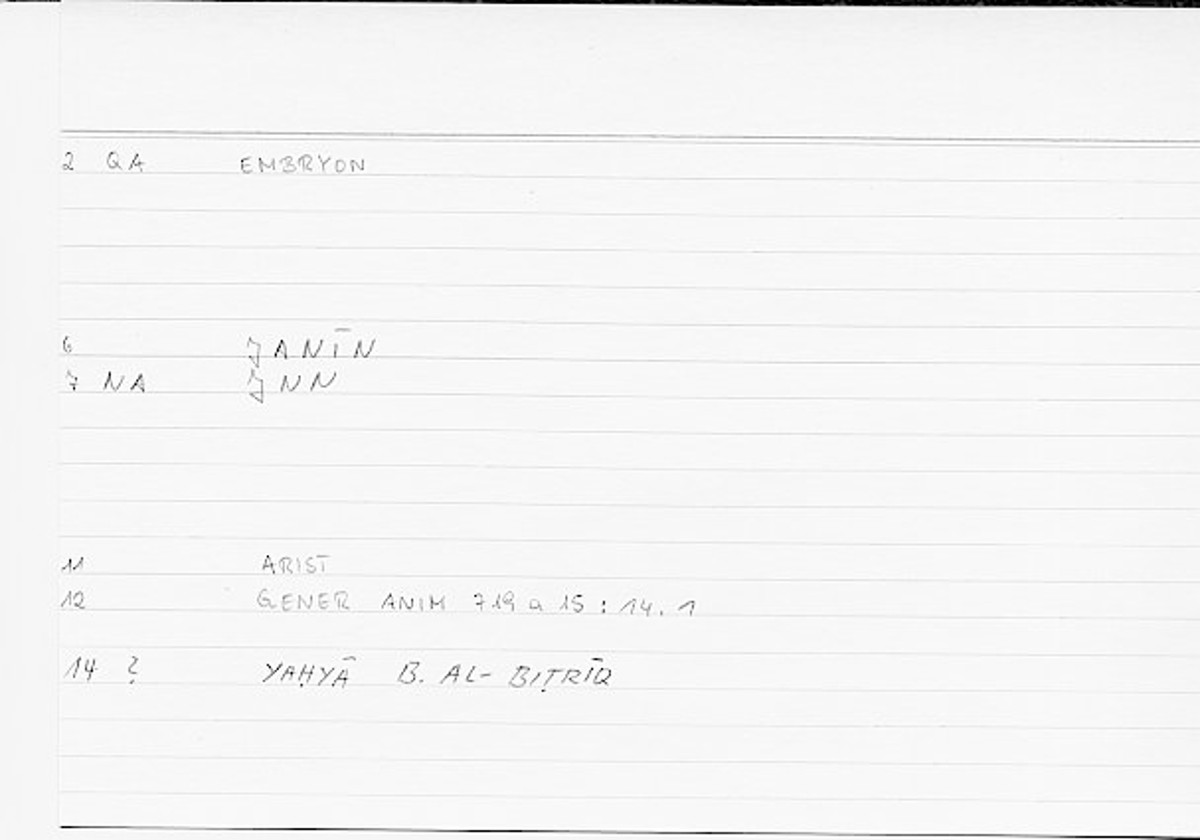 2 QA EMBRYON
6 JANĪN
7 NA JNN
11 ARIST
12 GENER ANIM 719 a 15 : 14. 1
14 ? YAḤYĀ B. AL-BIṬRĪQ